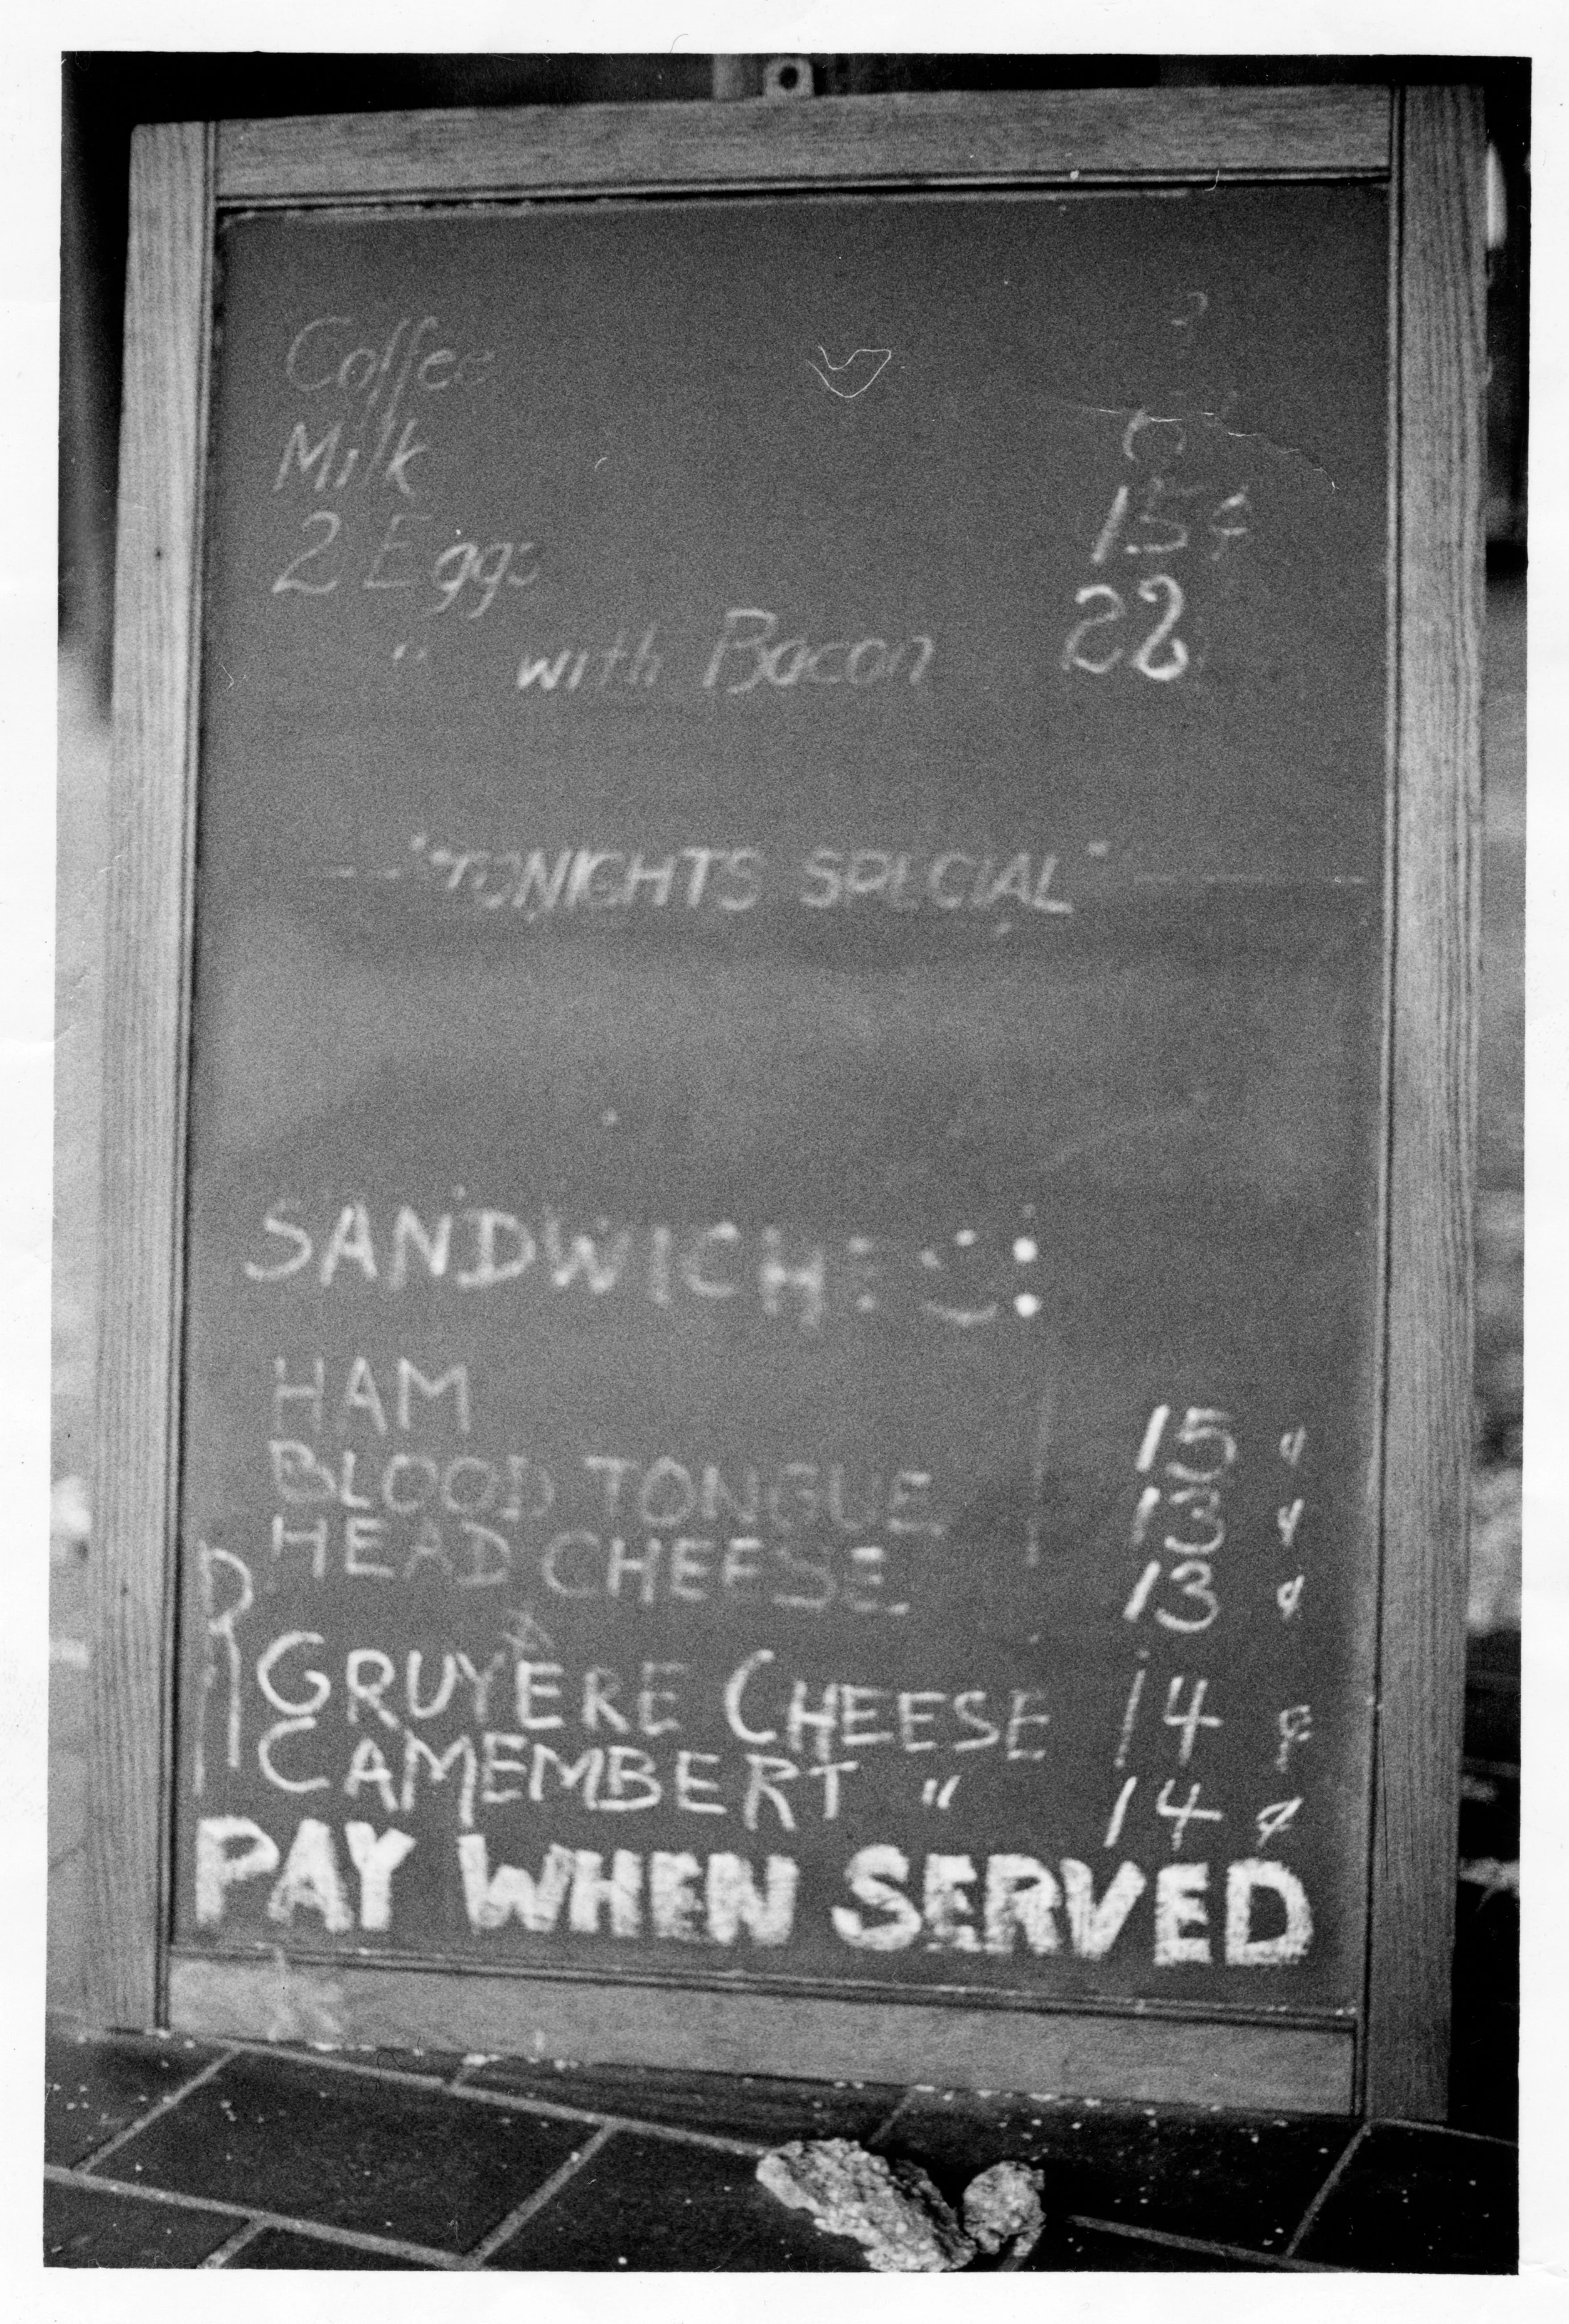 Coffee
Milk
2 Eggs 15¢
" with Bacon 22
"TONIGHTS SPECIAL"
SANDWICHES:
HAM 15 ¢
BLOOD TONGUE 13 ¢
HEAD CHEESE 13 ¢
GRUYERE CHEESE 14 ¢
CAMEMBERT " 14 ¢
PAY WHEN SERVED